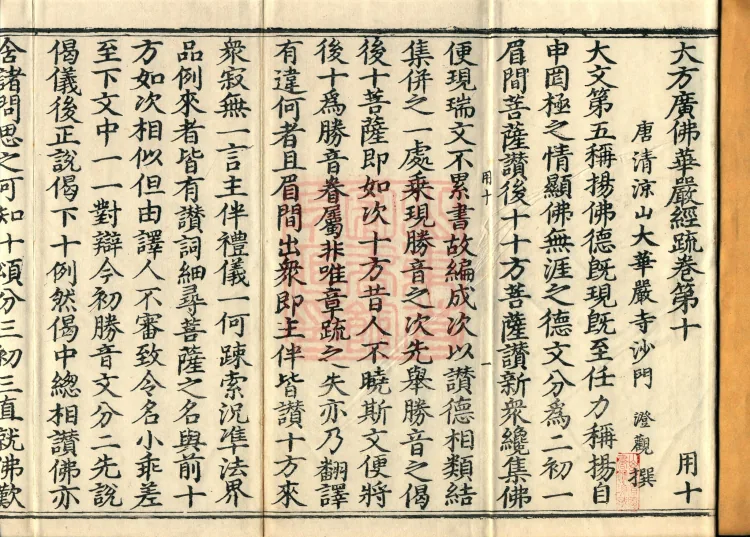 大方廣佛華嚴經疏卷第十 用十
唐清涼山大華嚴寺沙門 澄觀 撰
大文第五稱揚佛德旣現旣至任力稱揚自
申罔極之情顯佛無涯之德文分爲二初一
眉間菩薩讚後十十方菩薩讚新衆纔集佛
用十 一
便現瑞文不累書故編成次以讚德相類結
集併之一處乘現勝音之次先舉勝音之偈
後十菩薩即如次十方昔人不曉斯文便將
後十爲勝音眷屬非唯章疏之失亦乃翻譯
有違何者且眉間出衆即主伴皆讚十方來
衆寂無一言主伴禮儀一何踈索況準法界
品例來者皆有讚詞細尋菩薩之名與前十
方如次相似但由譯人不審致令名小乖差
至下文中一一對辯今初勝音文分二先說
偈儀後正說偈下十例然偈中總相讚佛亦
含諸問思之可知十頌分三初三直就佛歎